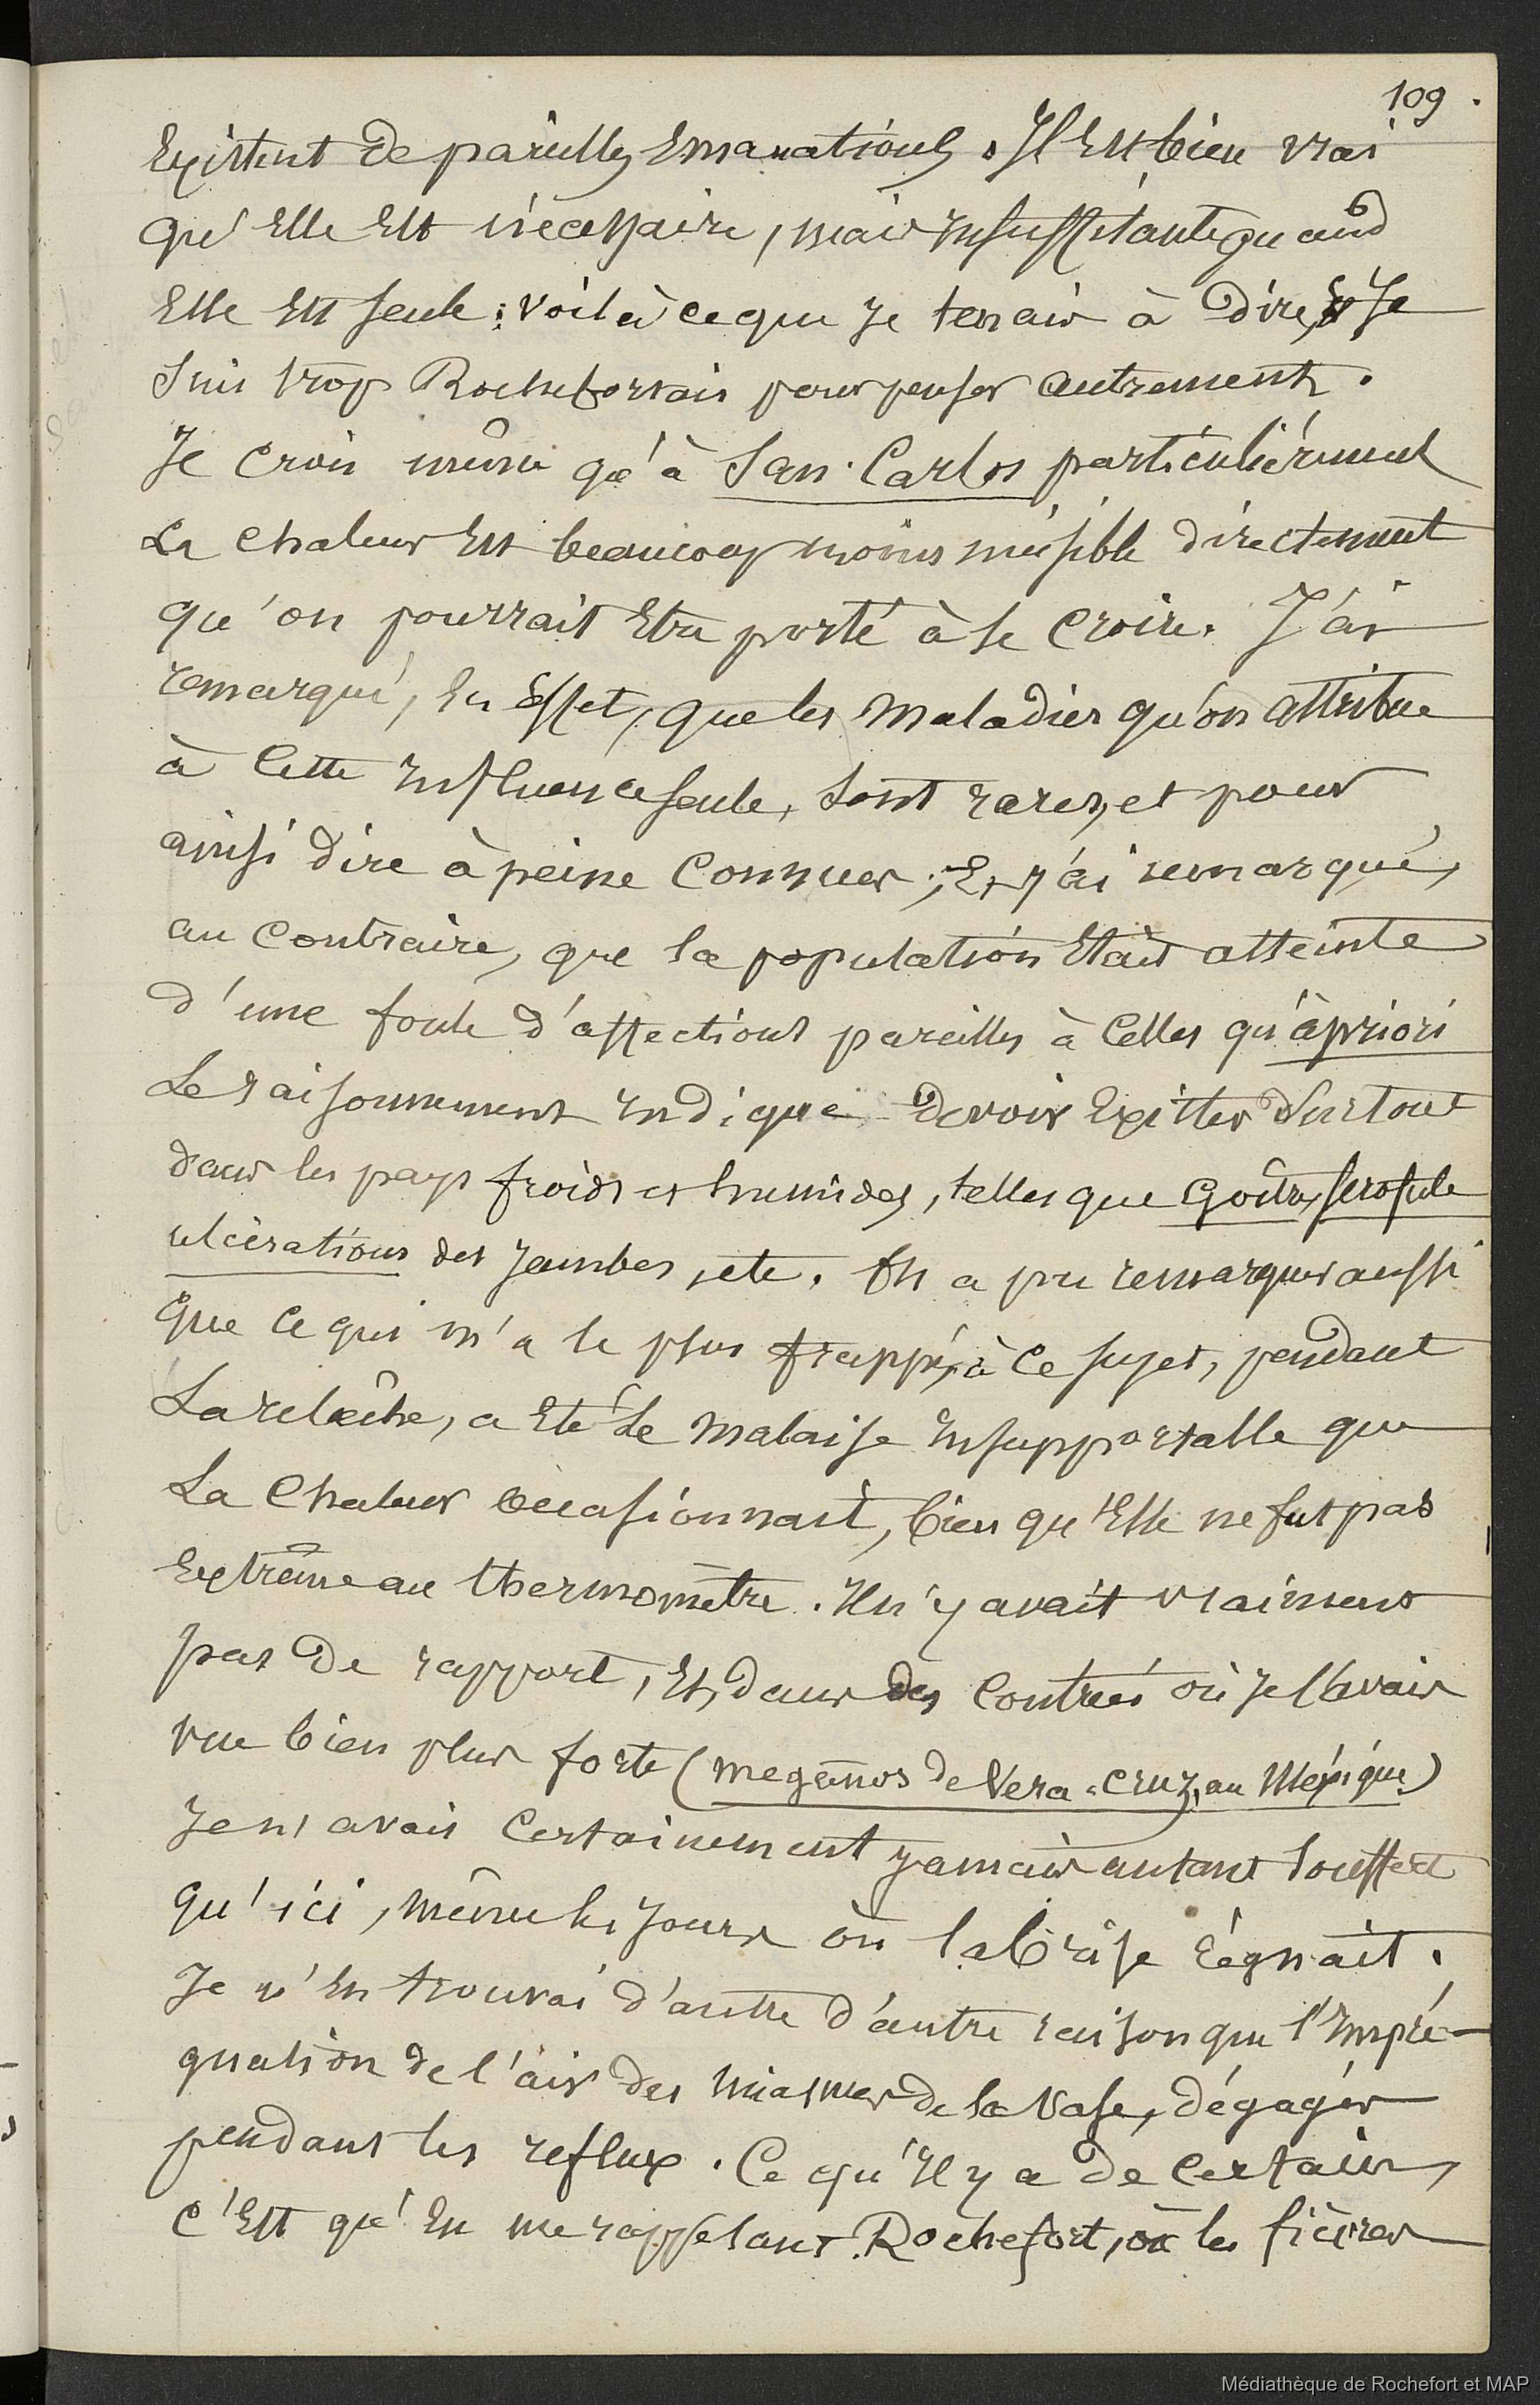 109.
Existent de pareilles Emanations. Il Est bien vrai
qu'Elle Est nécessaire, mais Insuffisante quand
Elle Est seule: voilà ce que Je tenais à Dire, & Je
Suis trop Rochefortais pour penser autrement.
Je crois même qu'à San-Carlos particuliérement
La chaleur Est beaucoup moins nuisible directement
qu'on pourrait Etre porté à le croire. J'ai
remarqué, En Effet, que les maladies qu'on attribue
à Cette Influence seule, sont rares, et pour
ainsi dire à peine Connues; Et j'ai remarqué,
au Contraire, que la population Etait atteinte
d'une foule d'affections pareilles à Celles qu'àpriori
Le raisonnement Indique devoir Exister Surtout
dans les pays froids et humides, telles que Goître, scrofule
ulcérations des Jambes, etc. On a pu remarquer aussi
que Ce qui m'a le plus frappé, à Ce sujet, pendant
La relâche, a Eté Le malaise Insupportable que
La Chaleur occasionnait, bien qu'Elle ne fut pas
Extrême au thermomètre. Il n'y avait vraiment
pas De rapport, Et, dans des Contrées où je l'avais
vue bien plus forte (megânos de Vera-Cruz, au Méxique)
Je n'avais Certainement jamais autant souffert
qu'ici, même les Jours où la brise régnait.
Je n'En trouvai d'autre d'autre raison que l'Impré-
gnation de l'air des miasmes de la Vase, dégagés
pendant les reflux. Ce qu'Il y a de Certain,
C'Est qu'En me rappelant Rochefort, où les fièvres
Médiathèque de Rochefort et MAP